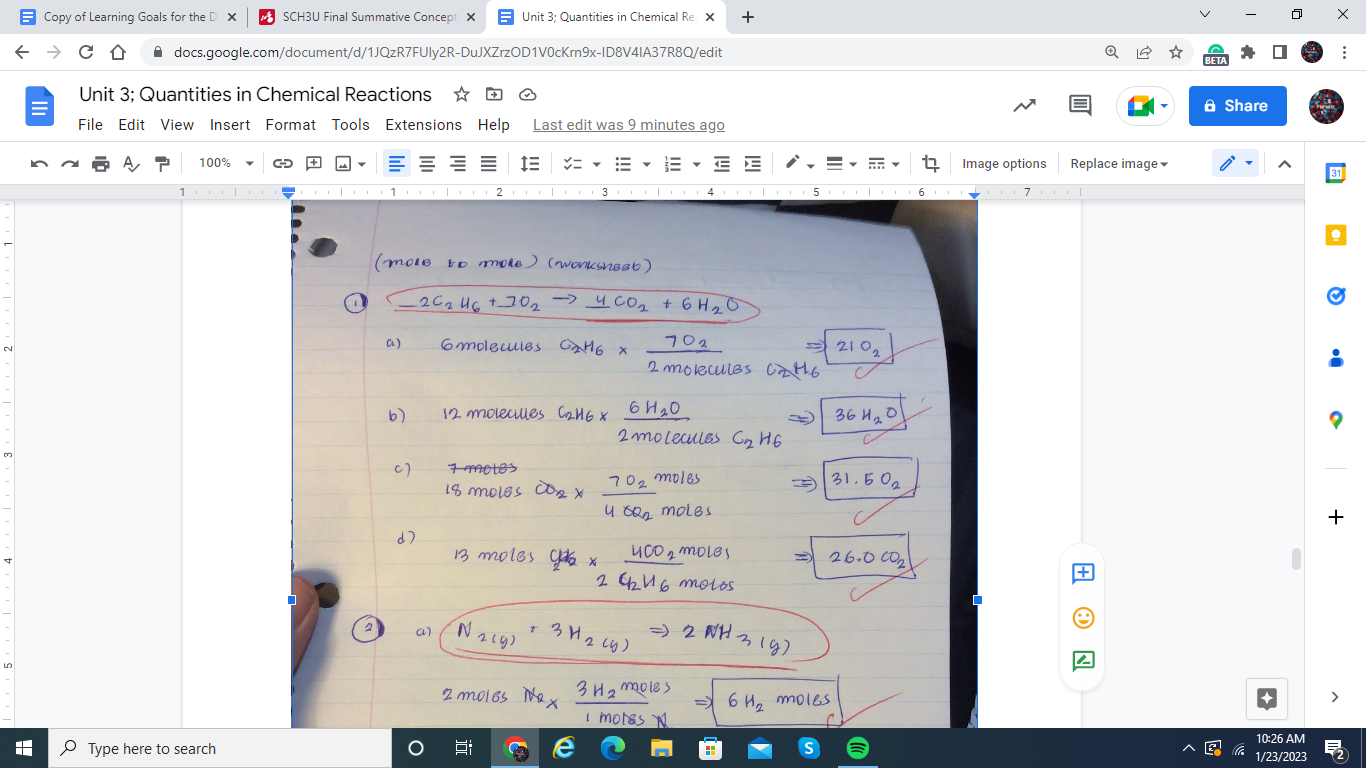 Copy of Learning Goals for the D
SCH3U Final Summative Concept
Unit 3; Quantities in Chemical Re
docs.google.com/document/d/1JQzR7FUIy2R-DuJXZrzOD1V0cKrn9x-ID8V4IA37R8Q/edit
BETA
Unit 3; Quantities in Chemical Reactions
Share
File Edit View Insert Format Tools Extensions Help Last edit was 9 minutes ago
100% Image options Replace image
31
1 1 2 3 4 5 6 7
1
2
3
4
5
(mole to mole) (worksheet)
① 2C2H6 + 7O2 → 4CO2 + 6H2O
a) 6 molecules C2H6 × 7O2 ⇒ 21 O2
2 molecules C2H6
b) 12 molecules C2H6 × 6H2O ⇒ 36 H2O
2 molecules C2H6
c) 7 moles
18 moles CO2 × 7O2 moles ⇒ 31.5 O2
4 CO2 moles
d) 13 moles × 4CO2 moles ⇒ 26.0 CO2
2 C2H6 moles
② a) N2(g) + 3H2(g) ⇒ 2NH3(g)
2 moles N2 × 3H2 moles ⇒ 6H2 moles
1 moles N
Type here to search
10:26 AM
1/23/2023
2